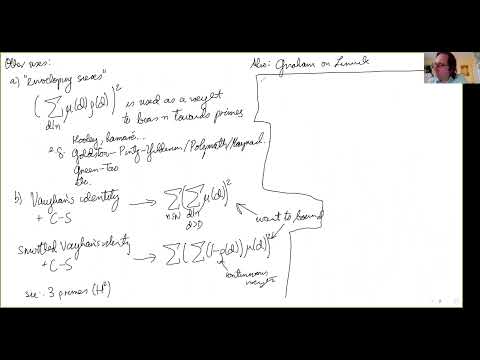 Other uses:
a) "enveloping sieves"
( ∑_{d|n} μ(d) ρ(d) )² is used as a weight
to bias n towards primes
e.g. Hooley, Ramaré...
Goldston-Pintz-Yıldırım/Polymath/Maynard...
Green-Tao
etc.
b) Vaughan's identity
+ C-S → ∑_{n≤N} ( ∑_{d|n, d>D} μ(d) )²
want to bound
smoothed Vaughan's identity
+ C-S → ∑ ( ∑ (1-ρ(d)) μ(d) )²
continuous
weight
see: 3 primes (H²)
Also: Graham on Linnik